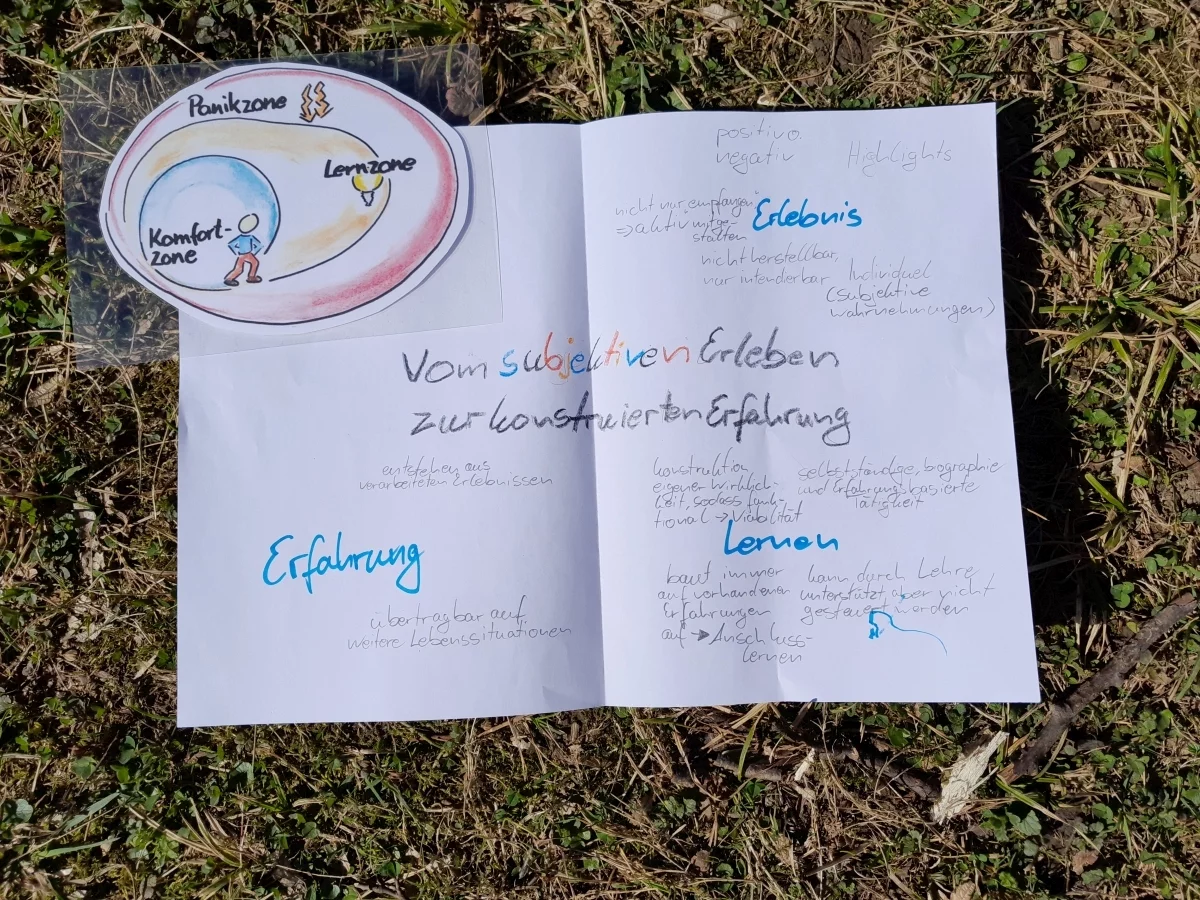 Panikzone
Lernzone
Komfort-
zone
positiv o.
negativ
Highlights
nicht nur empfangen
⇒ aktiv mitge-
stalten
Erlebnis
nicht herstellbar,
nur intendierbar
Individuel
(subjektive
wahrnehmungen)
Vom subjektiven Erleben
zur konstruierten Erfahrung
entstehen aus
verarbeiteten Erlebnissen
Erfahrung
übertragbar auf
weitere Lebenssituationen
konstruktion
eigener Wirklich-
keit, sodass funk-
tional → Viabilität
selbstständige, biographie
und Erfahrungsbasierte
Tätigkeit
Lernen
baut immer
auf vorhandenen
Erfahrungen
auf → Anschluss-
lernen
kann durch Lehre
unterstützt, aber nicht
gesteuert werden